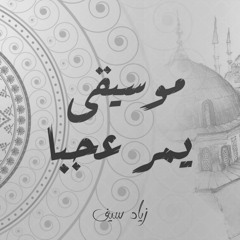 موسيقى
يمر عجبا
زياد سيف